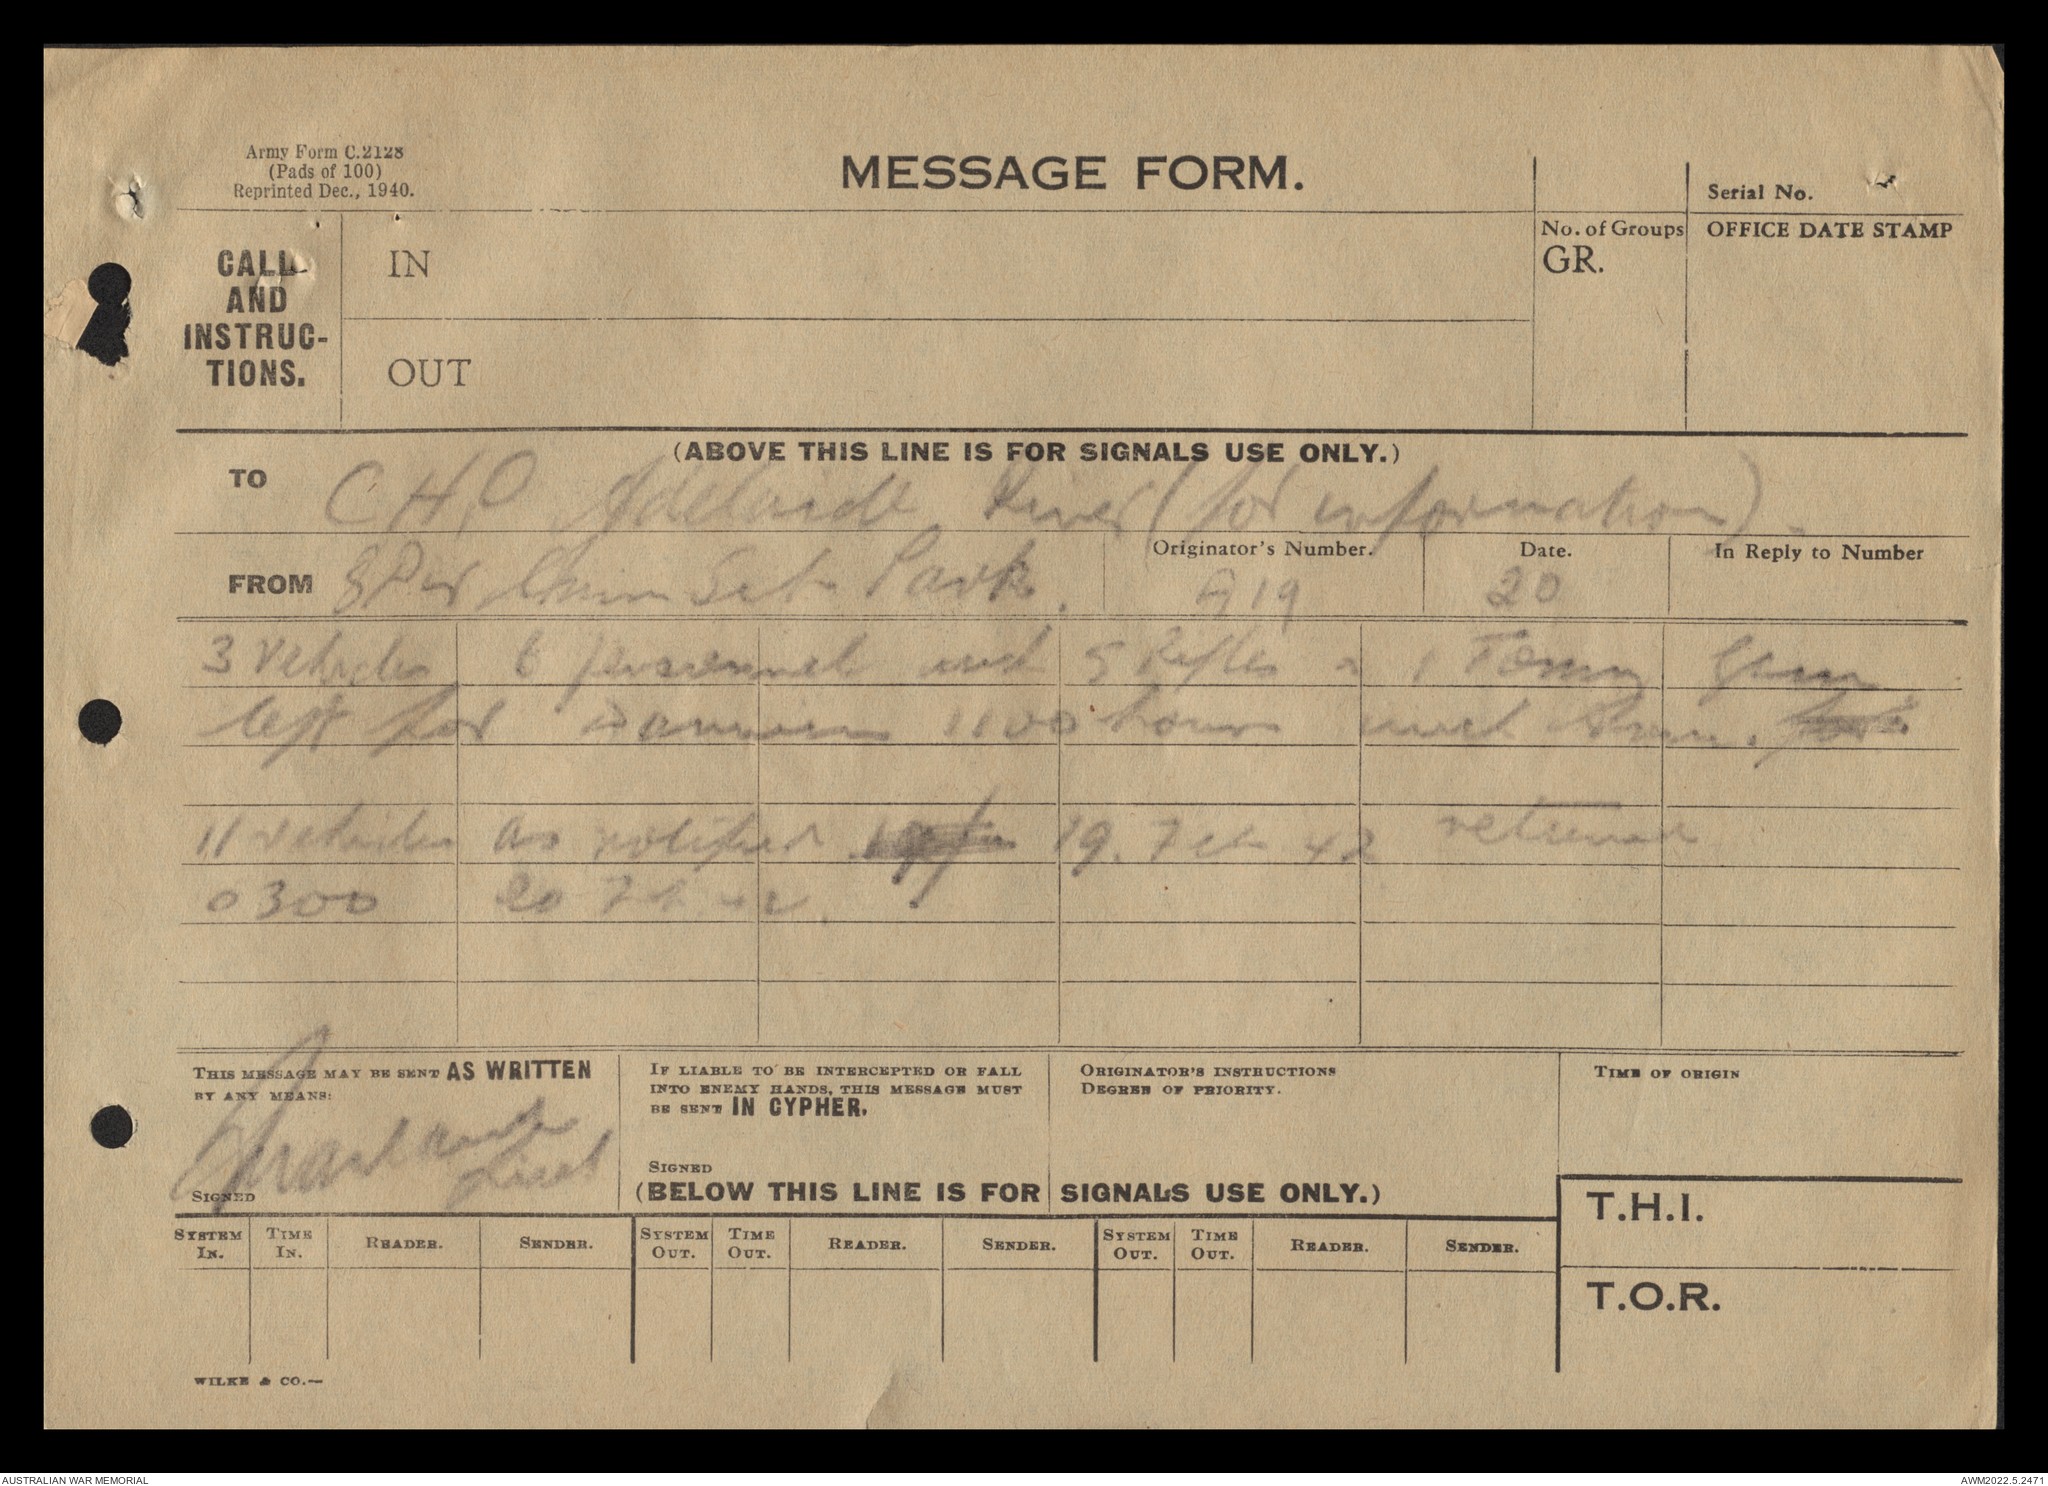 Army Form C.2128
(Pads of 100)
Reprinted Dec., 1940.
MESSAGE FORM.
Serial No.
CALL
AND
INSTRUC-
TIONS.
IN
OUT
No. of Groups
GR.
OFFICE DATE STAMP
(ABOVE THIS LINE IS FOR SIGNALS USE ONLY.)
TO C.H.Q Adelaide River (for information).
FROM Park.
Originator's Number.
A19
Date.
20
In Reply to Number
3 Vehicles 6 personnel and 5 Rifles 1 Tommy Gun
left for 1100 hours
11 vehicles as notified 19. Feb 42 returned
0300 20 Feb 42.
THIS MESSAGE MAY BE SENT AS WRITTEN
BY ANY MEANS:
Lieut
SIGNED
IF LIABLE TO BE INTERCEPTED OR FALL
INTO ENEMY HANDS, THIS MESSAGE MUST
BE SENT IN CYPHER.
SIGNED
ORIGINATOR'S INSTRUCTIONS
DEGREE OF PRIORITY.
TIME OF ORIGIN
(BELOW THIS LINE IS FOR SIGNALS USE ONLY.)
T.H.I.
SYSTEM IN. TIME IN. READER. SENDER. SYSTEM OUT. TIME OUT. READER. SENDER. SYSTEM OUT. TIME OUT. READER. SENDER.
T.O.R.
WILKE & CO.—
AUSTRALIAN WAR MEMORIAL
AWM2022.5.2471